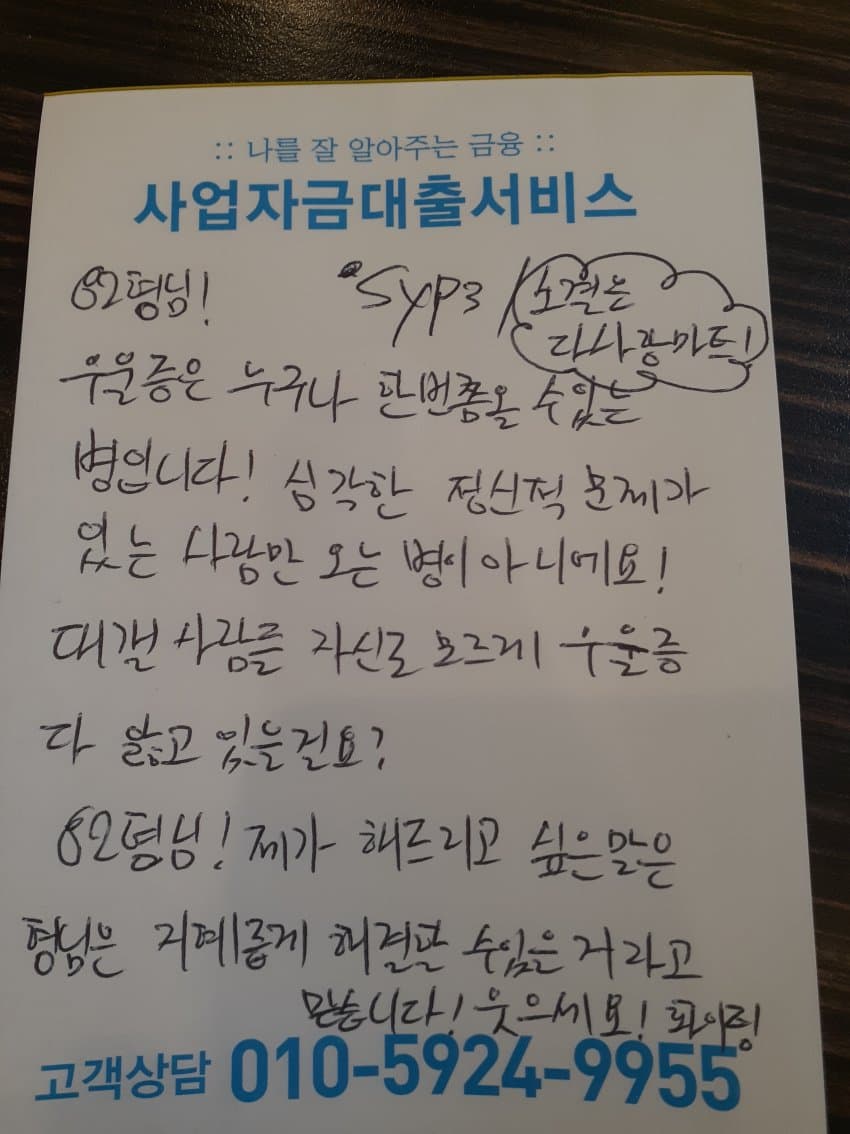 :: 나를 잘 알아주는 금융 ::
사업자금대출서비스
82형님! syp3 / 노결은
다사랑마트!
우울증은 누구나 한번쯤올 수있는
병입니다! 심각한 정신적 문제가
있는 사람만 오는 병이아니에요!
대갤 사람들 자신도 모르게 우울증
다 앓고 있을걸요?
82형님! 제가 해드리고 싶은말은
형님은 지혜롭게 해결할 수있을거라고
믿습니다! 웃으세요! 화이팅
고객상담 010-5924-9955